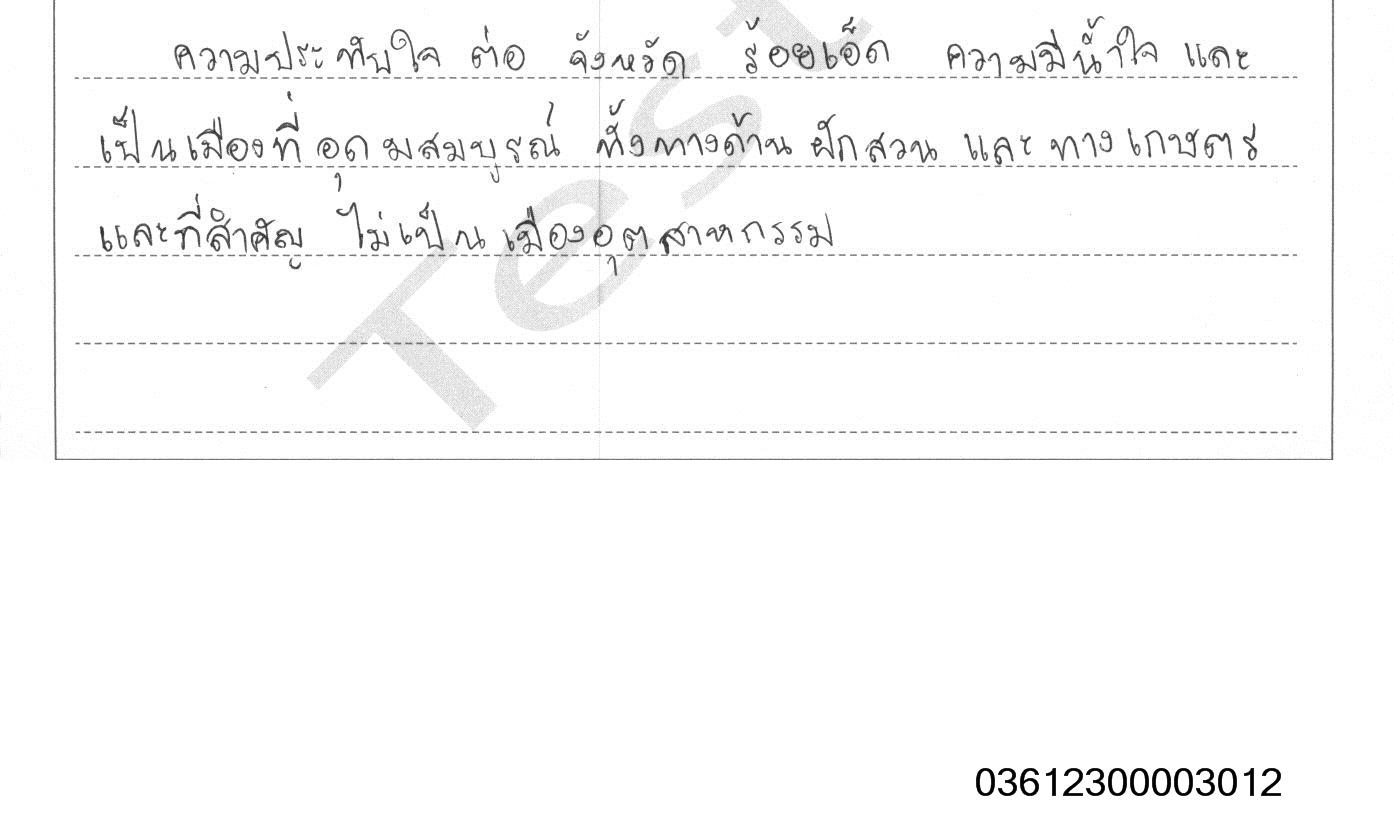 ความประทับใจ ต่อ จังหวัด ร้อยเอ็ด ความมีน้ำใจ และ
เป็นเมืองที่อุดมสมบูรณ์ ทั้งทางด้านผักสวน และทางเกษตร
และที่สำคัญ ไม่เป็นเมืองอุตสาหกรรม
Test
03612300003012